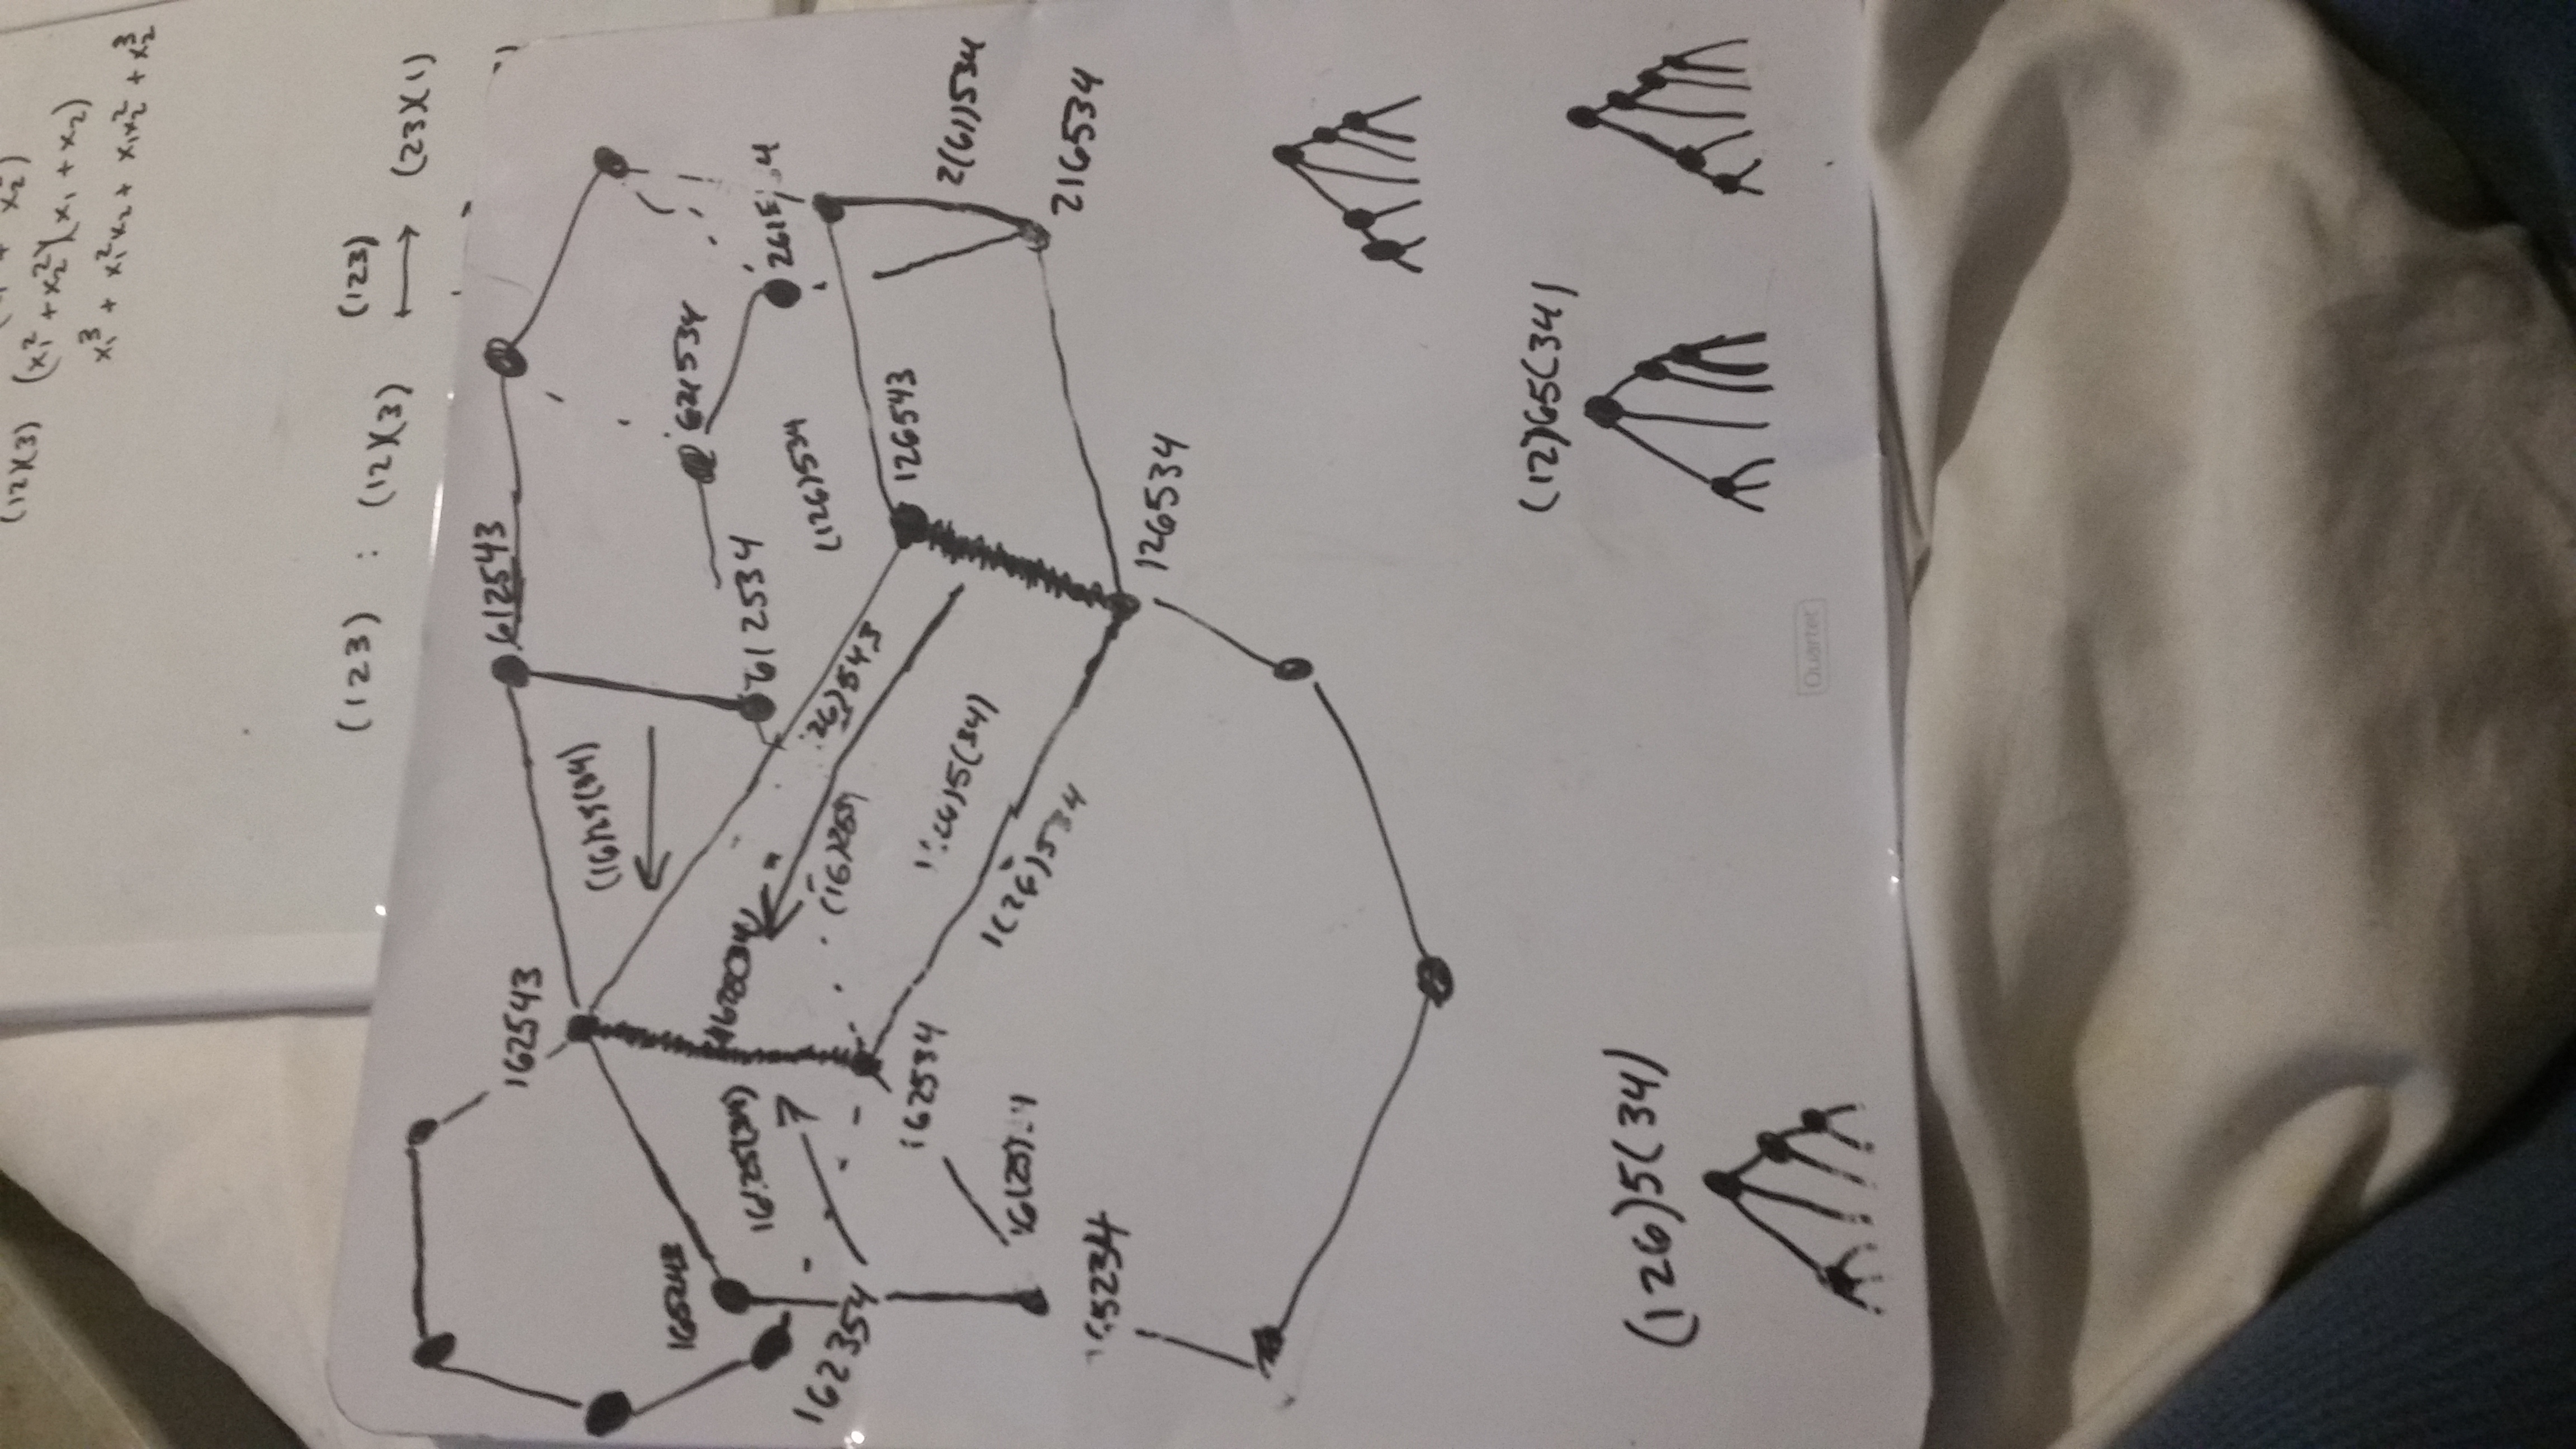 (12)(3) (x₁² + x₂²)(x₁ + x₂)
x₁³ + x₁²x₂ + x₁x₂² + x₂³
(123) : (12)(3) ⟼ (23)(1)
(123)
612543
162543
(16)25(34)
165243
621534
612534
16 25(34)
1625(34)
(126)534
162354
(16)25
26)543
126543
162534
5(34)
2(61)534
1(26)534
16(25)
216534
65234
126534
(12)65(34)
(126)5(34)
Quartet